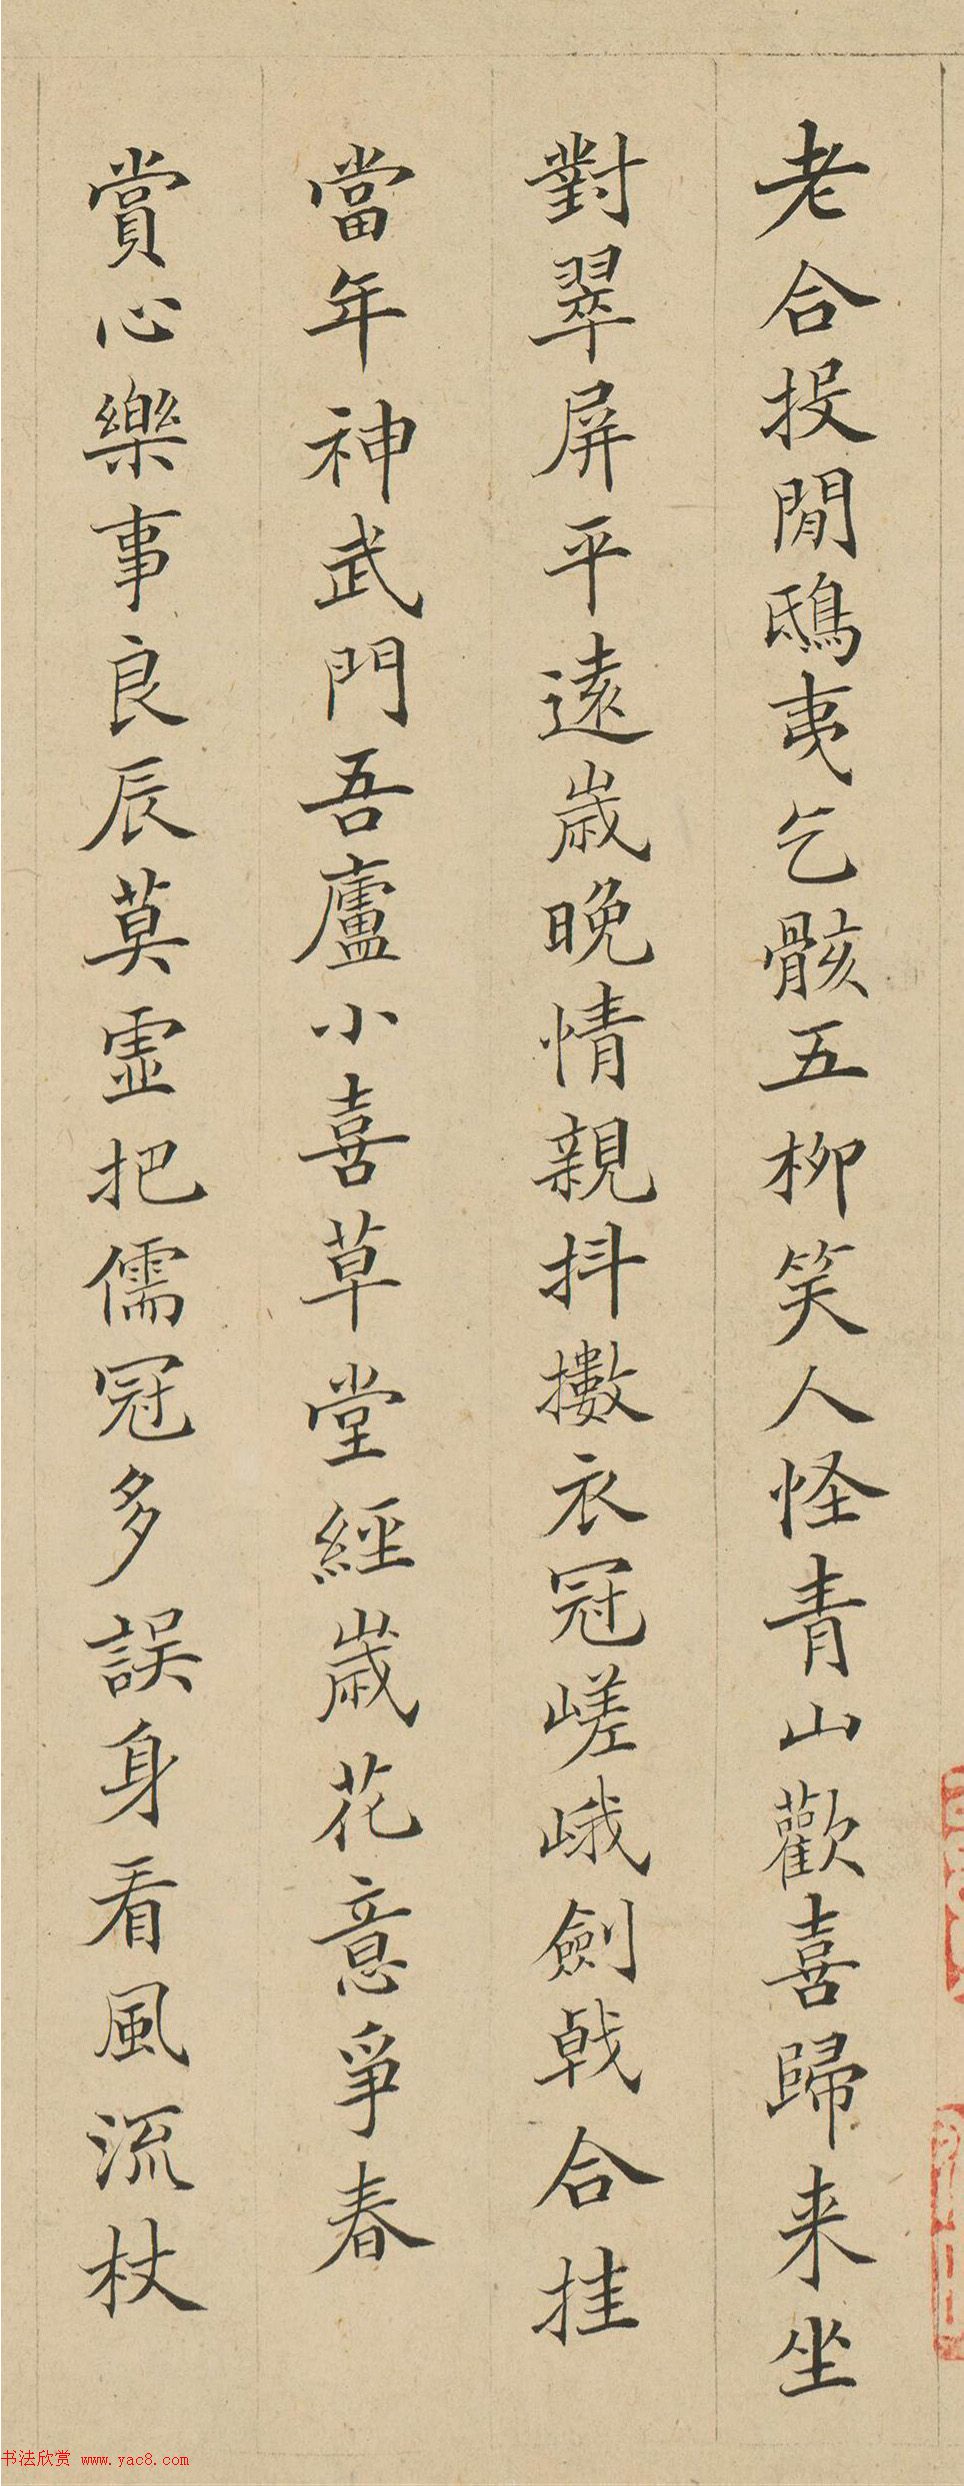 老合投閒鴟夷乞骸五柳笑人怪青山歡喜歸来坐
對翠屏平遠歲晚情親抖擻衣冠嵯峨劍戟合挂
當年神武門吾廬小喜草堂經歲花意爭春
賞心樂事良辰莫虛把儒冠多誤身看風流杖
书法欣赏 www.yac8.com